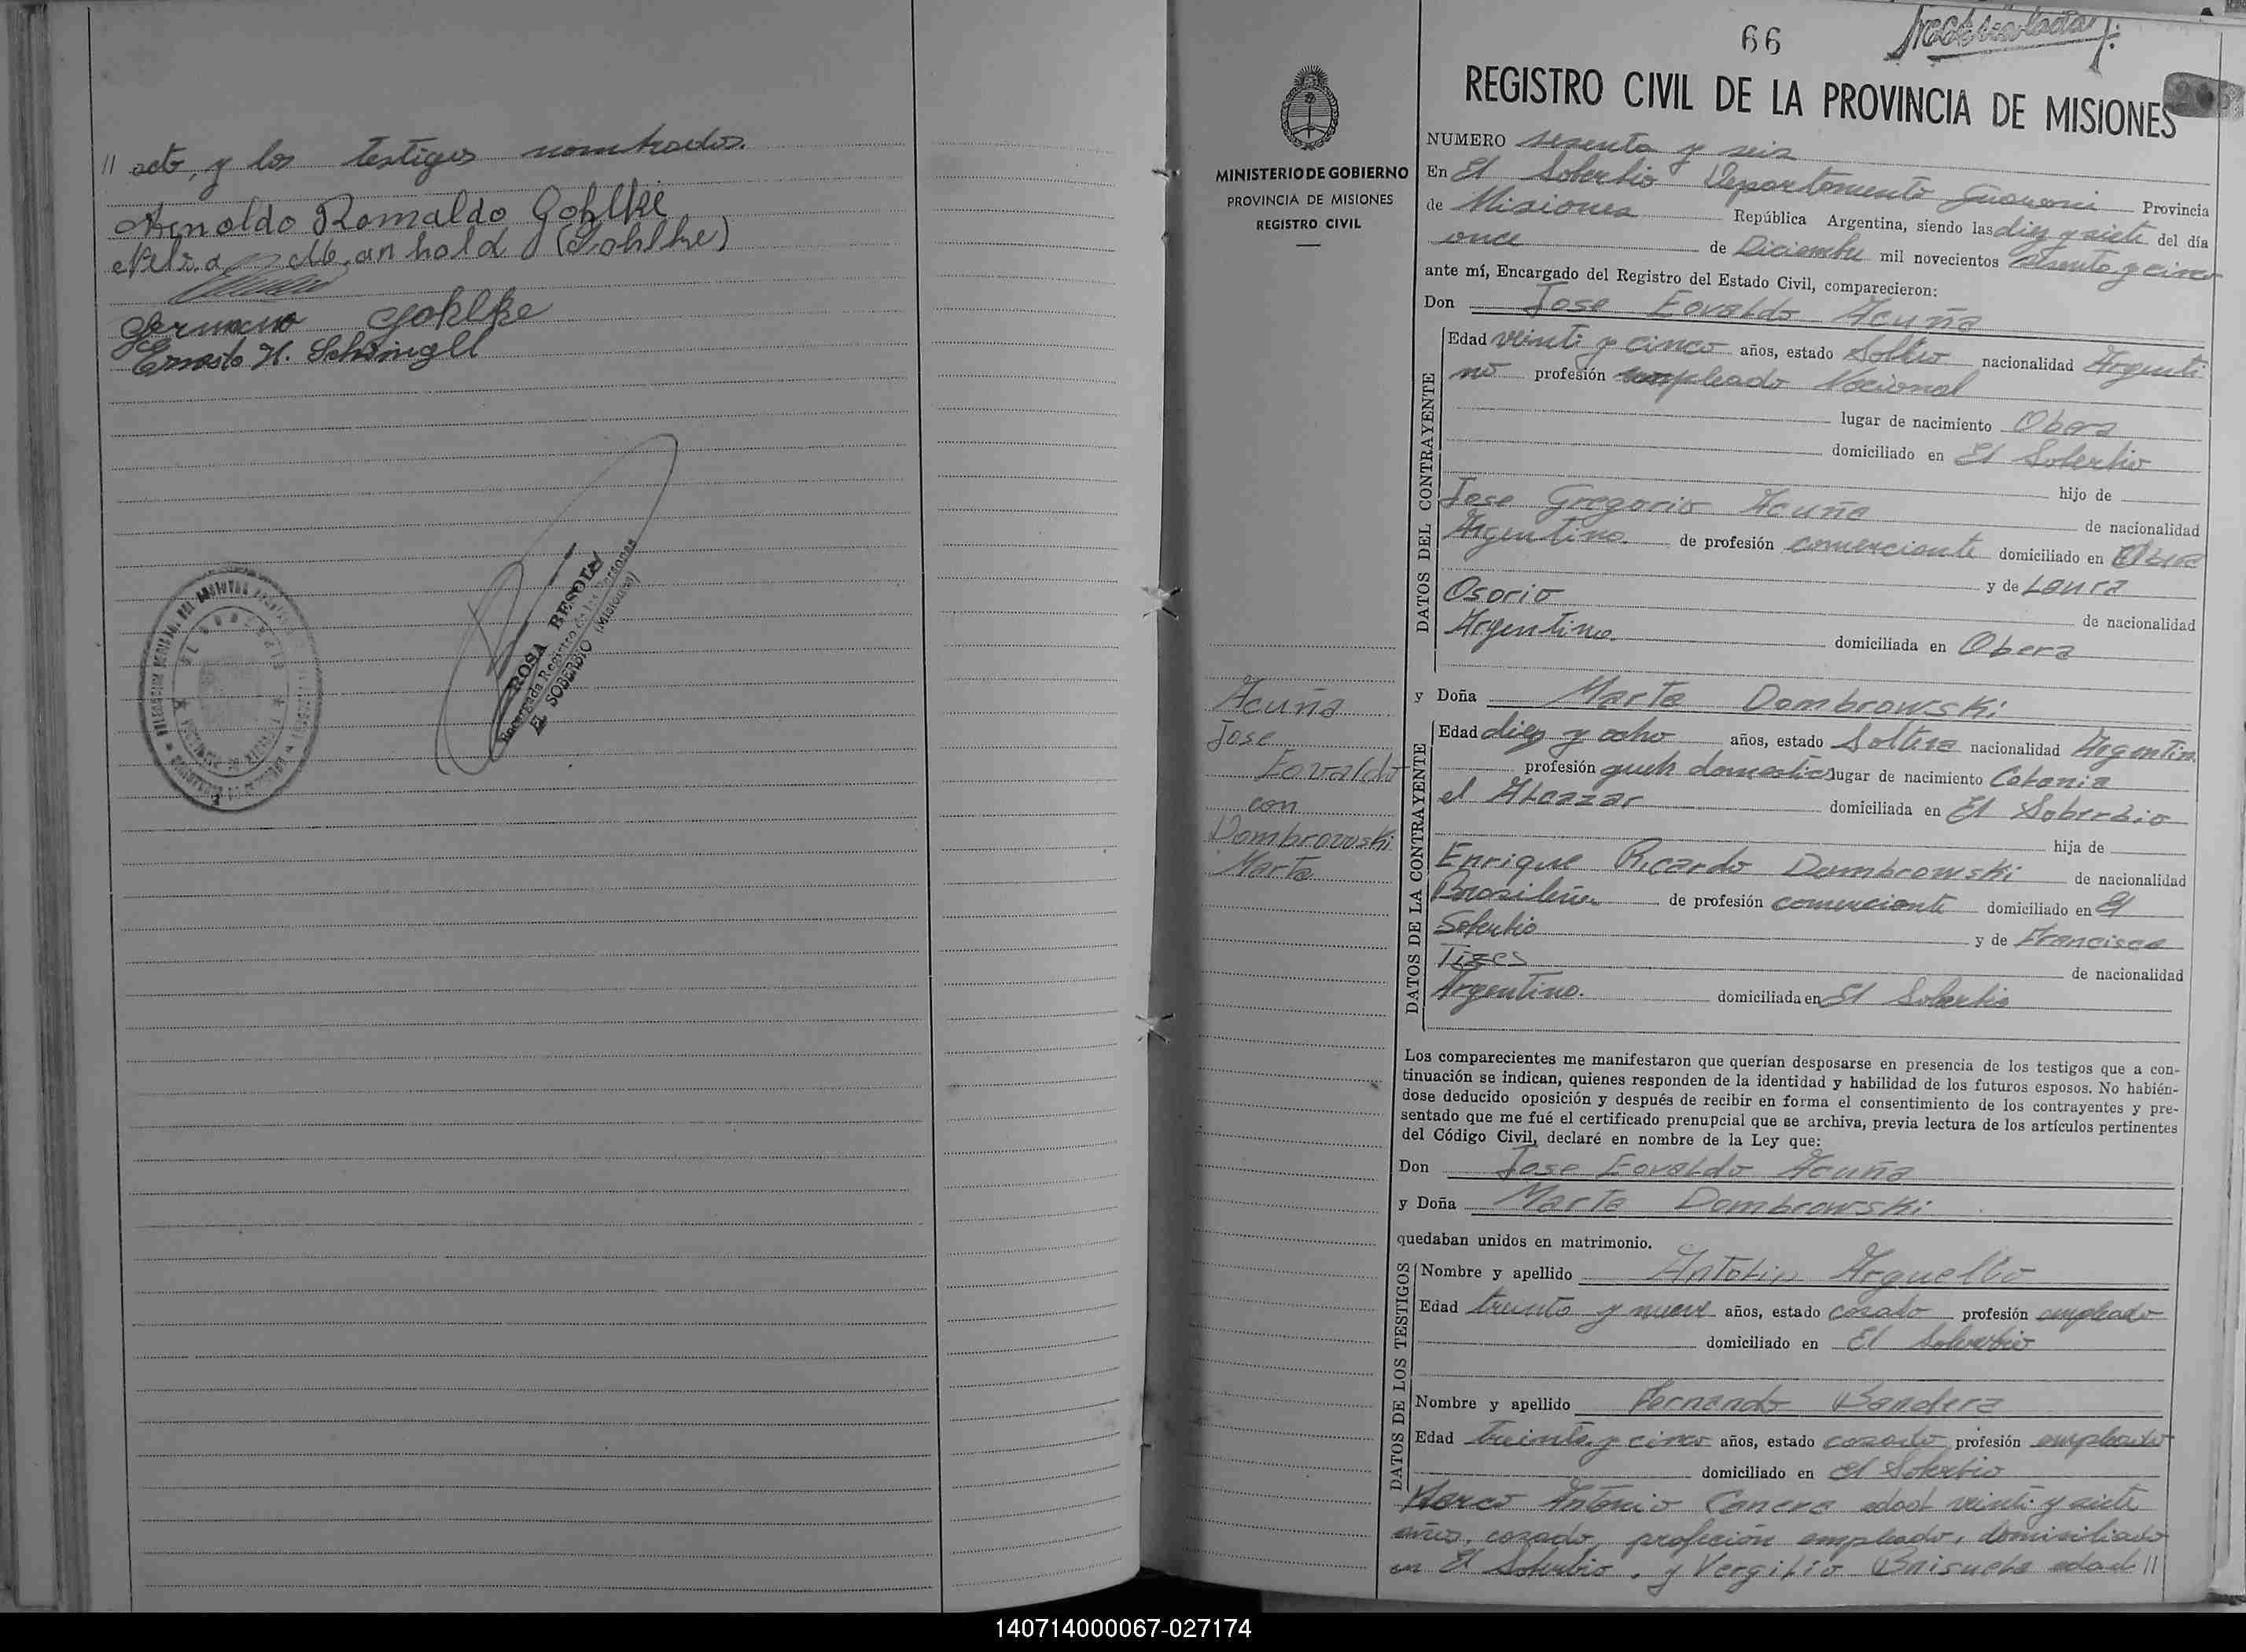 // acto, y los testigos nombrados.
Arnoldo Romaldo Gohlke
Nelsa Manhold (Gohlke)
Germano Gohlke
Ernesto H.
ROSA BESOLD
Encargada Registro de las Personas
EL SOBERBIO (Misiones)
66
REGISTRO CIVIL DE LA PROVINCIA DE MISIONES
MINISTERIO DE GOBIERNO
PROVINCIA DE MISIONES
REGISTRO CIVIL
Acuña
Jose
Eovaldo
con
Dombrowski
Marta
NUMERO sesenta y seis
En El Soberbio Departamento Guarani Provincia
de Misiones República Argentina, siendo las diez y siete del día
once de Diciembre mil novecientos sesenta y cinco
ante mí, Encargado del Registro del Estado Civil, comparecieron:
Don Jose Eovaldo Acuña
DATOS DEL CONTRAYENTE
Edad veinti y cinco años, estado Soltero nacionalidad Argenti
no profesión empleado Nacional
lugar de nacimiento Obera
domiciliado en El Soberbio
hijo de
Jose Gregorio Acuña de nacionalidad
Argentino. de profesión comerciante domiciliado en Obera
y de Laura
Osorio de nacionalidad
Argentina. domiciliada en Obera
y Doña Marta Dombrowski
DATOS DE LA CONTRAYENTE
Edad diez y ocho años, estado Soltera nacionalidad Argentina
profesión queh domesticos lugar de nacimiento Colonia
el Alcazar domiciliada en El Soberbio
hija de
Enrique Ricardo Dombrowski de nacionalidad
Brasileña de profesión comerciante domiciliado en El
Soberbio y de Francisca
de nacionalidad
Argentina. domiciliada en El Soberbio
Los comparecientes me manifestaron que querían desposarse en presencia de los testigos que a con-
tinuación se indican, quienes responden de la identidad y habilidad de los futuros esposos. No habién-
dose deducido oposición y después de recibir en forma el consentimiento de los contrayentes y pre-
sentado que me fué el certificado prenupcial que se archiva, previa lectura de los artículos pertinentes
del Código Civil, declaré en nombre de la Ley que:
Don Jose Eovaldo Acuña
y Doña Marta Dombrowski
quedaban unidos en matrimonio.
DATOS DE LOS TESTIGOS
Nombre y apellido Antolin Arguello
Edad treinta y nueve años, estado casado profesión empleado
domiciliado en El Soberbio
Nombre y apellido Fernando Bandera
Edad treinta y cinco años, estado casado profesión empleado
domiciliado en El Soberbio
Marco Antonio Canera edad veinti y siete
años, casado, profeción empleado, domisiliado
en El Soberbio, y Vergilio Brisuela edad //
140714000067-027174